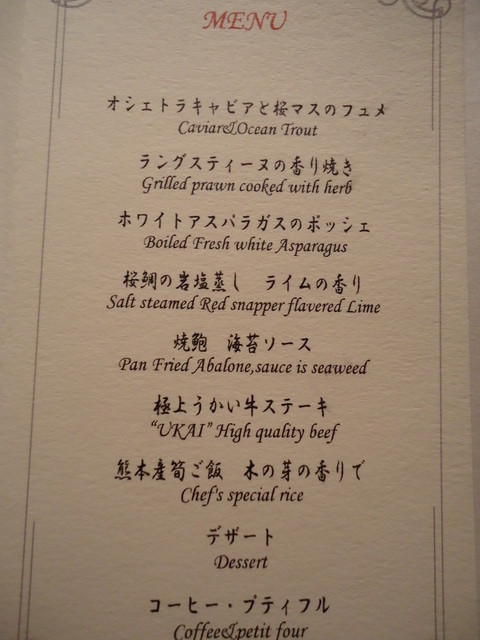 MENU
オシェトラキャビアと桜マスのフュメ
Caviar&Ocean Trout
ラングスティーヌの香り焼き
Grilled prawn cooked with herb
ホワイトアスパラガスのポッシェ
Boiled Fresh white Asparagus
桜鯛の岩塩蒸し　ライムの香り
Salt steamed Red snapper flavered Lime
焼鮑　海苔ソース
Pan Fried Abalone,sauce is seaweed
極上うかい牛ステーキ
"UKAI" High quality beef
熊本産筍ご飯　木の芽の香りで
Chef's special rice
デザート
Dessert
コーヒー・プティフル
Coffee&petit four